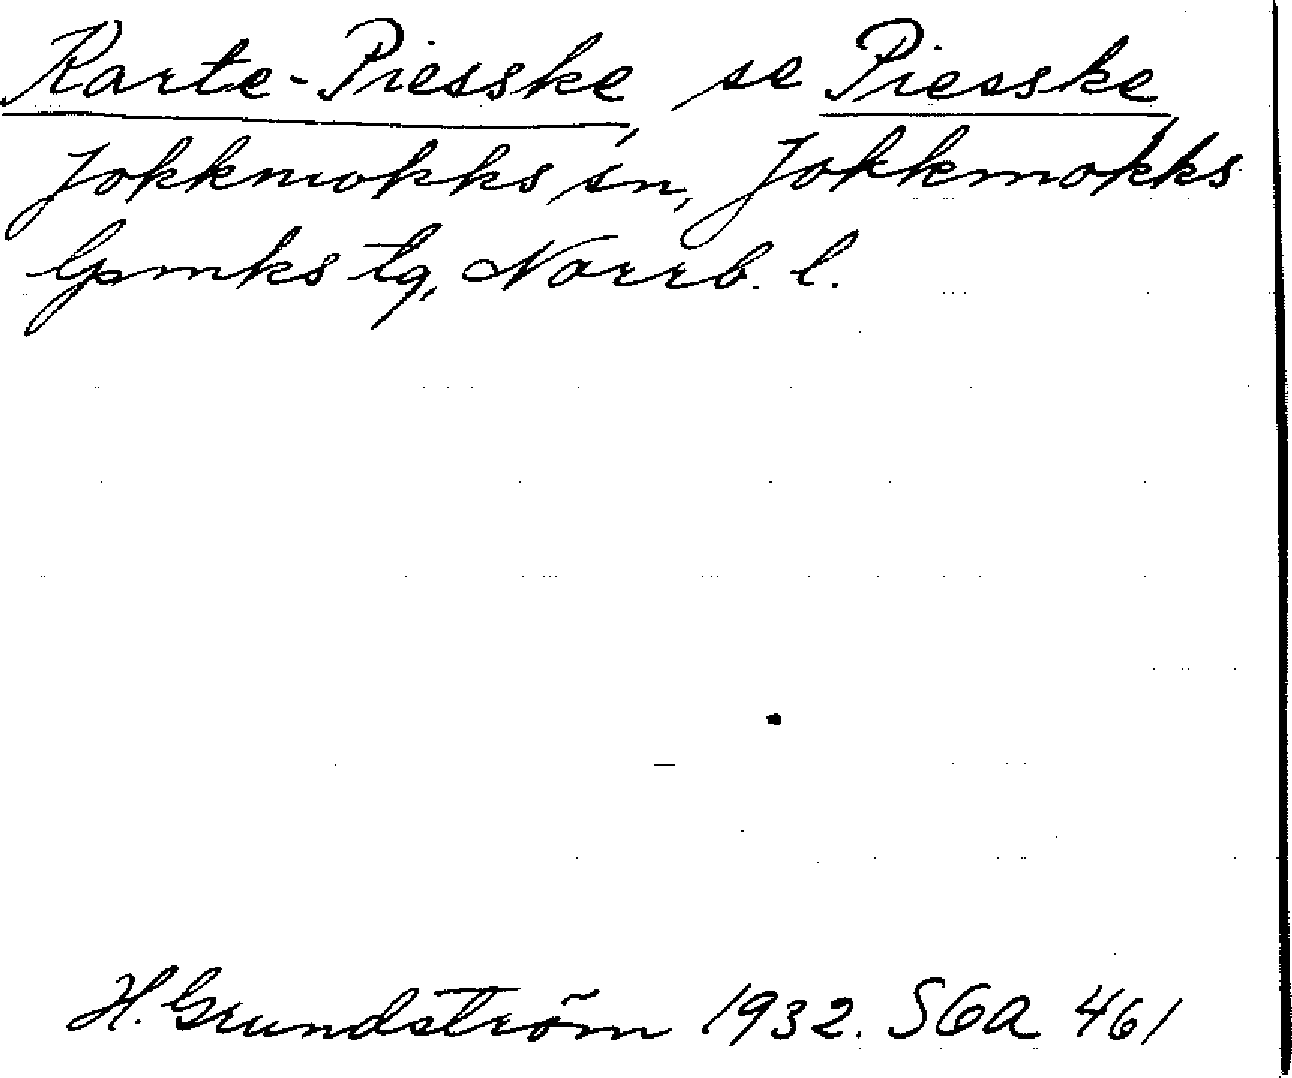 Karte-Piesske, se Piesske,
Jokkmokks sn, Jokkmokks
lpmks tg, Norrb. l.
H. Grundström 1932. SGA 461